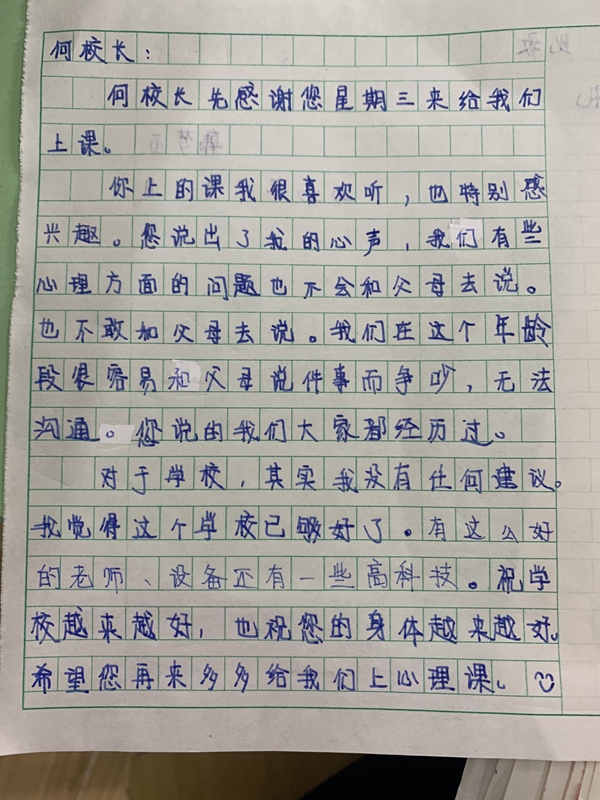 何校长：
何校长先感谢您星期三来给我们
上课。
你上的课我很喜欢听，也特别感
兴趣。您说出了我的心声，我们有些
心理方面的问题也不会和父母去说。
也不敢和父母去说。我们在这个年龄
段很容易和父母说件事而争吵，无法
沟通。您说的我们大家都经历过。
对于学校，其实我没有任何建议。
我觉得这个学校已够好了。有这么好
的老师、设备还有一些高科技。祝学
校越来越好，也祝您的身体越来越好。
希望您再来多多给我们上心理课。